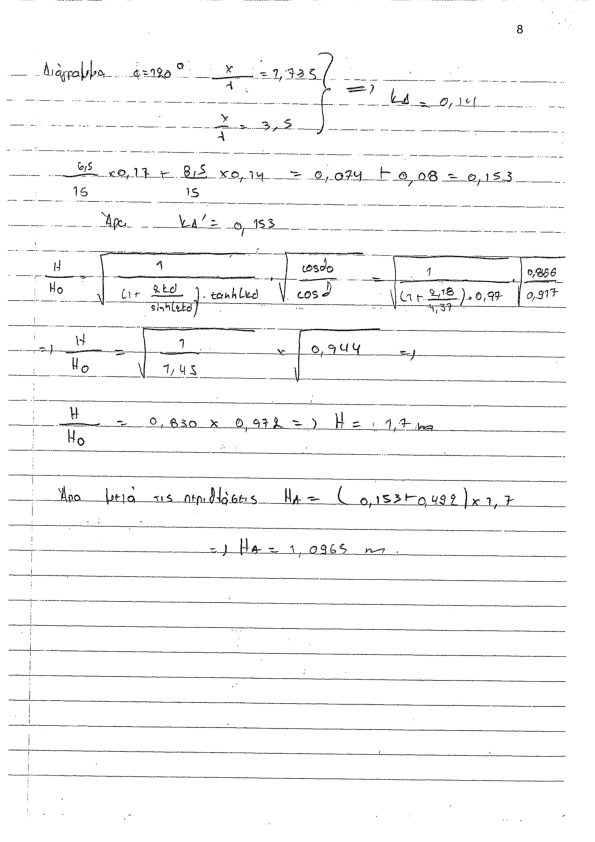 8
Διάγραμμα φ=120° x/λ = 1,735
x/λ = 3,5 } => kΔ = 0,141
6,5/15 x0,17 + 8,5/15 x0,14 = 0,074 + 0,08 = 0,153
Άρα kΔ' = 0,153
H/Ho = √(1/((1+ 2kd/sinh(2kd)).tanh(kd)) . √(cosαo/cosα) = √(1/((1+ 2,18/4,37).0,97)) . √(0,866/0,917)
=> H/Ho = √(1/1,45) x √0,944 =>
H/Ho = 0,830 x 0,972 => H = 1,7 m
Άρα μετά τις περιθλάσεις HA = (0,153+0,492)x1,7
=> HA = 1,0965 m.